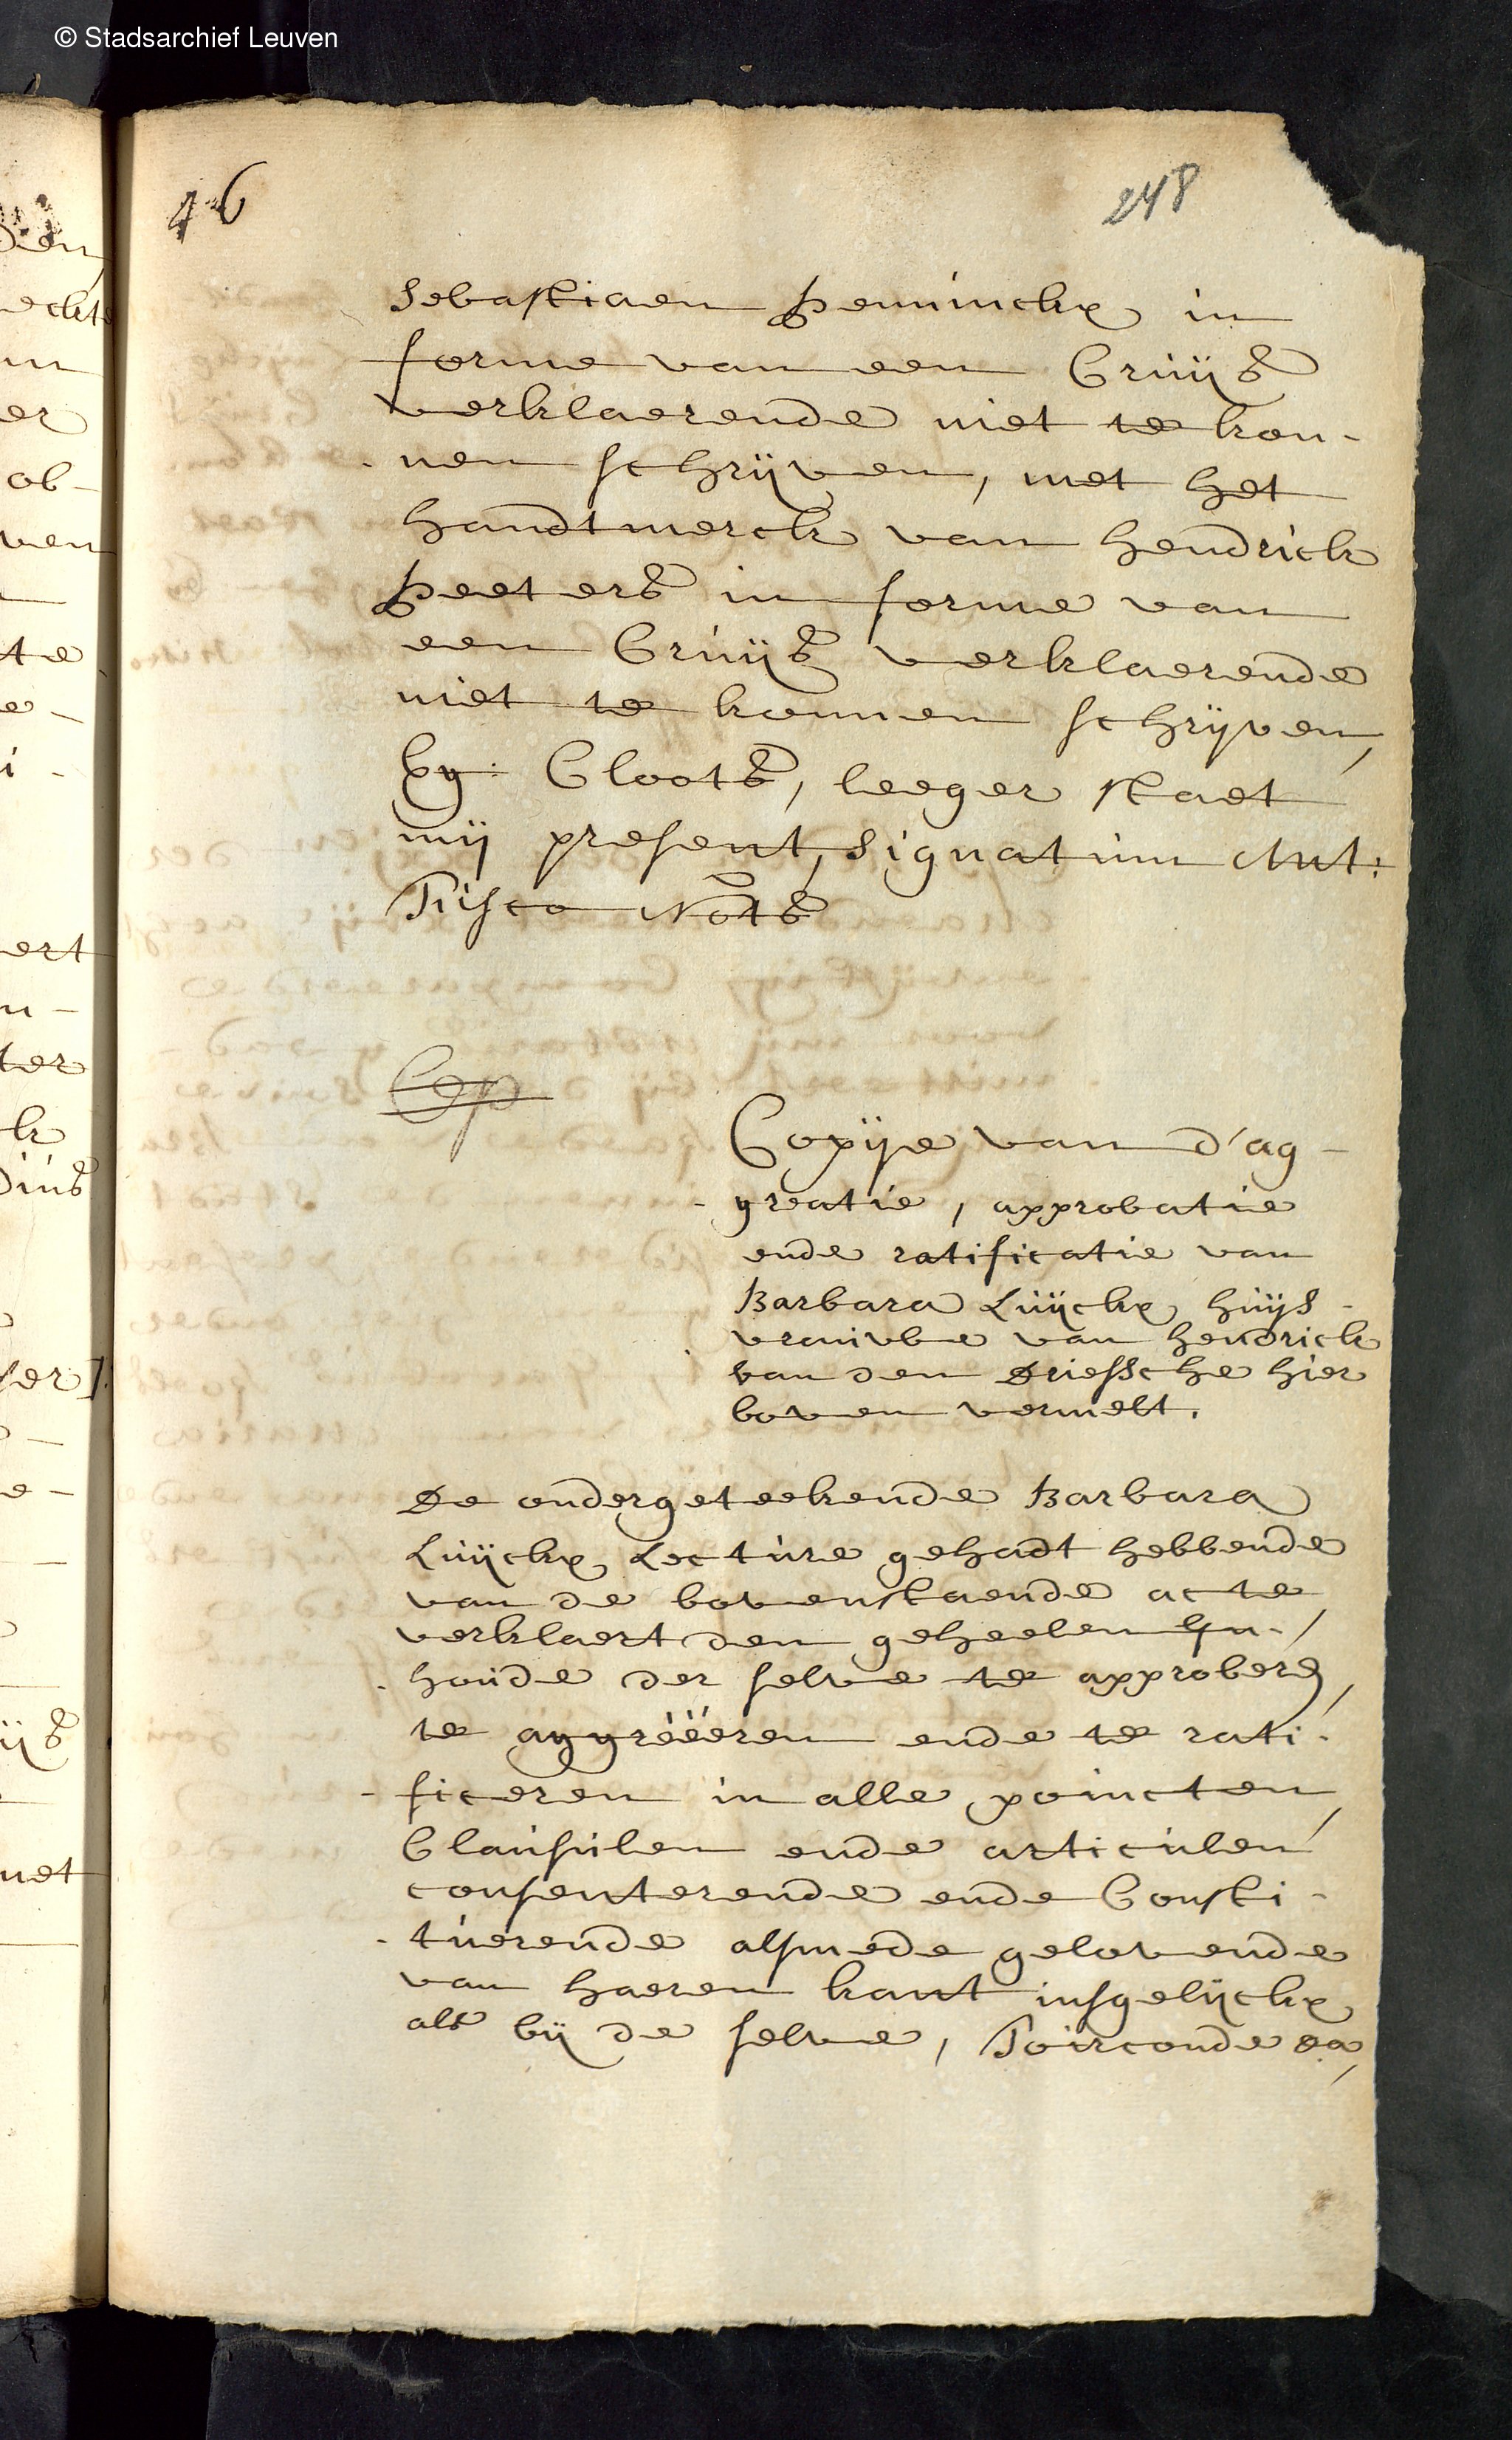 © Stadsarchief Leuven
46
248
Sebastiaen Penninckx in
forme van een Cruijs
verklaerende niet te kon-
-nen schrijven, met het
handtmerck van Hendrick
Peeters in forme van
een Cruijs verklaerende
niet te konnen schrijven,
Cloots, leeger staet
mij present, signatum Ant:
Tisco Nots
Cop
Copije van d'ag-
-greatie, approbatie
ende ratificatie van
Barbara Luijckx huijs-
-vrouwe van Hendrick
van den Driessche hier
boven vermelt.
De ondergeteekende Barbara
Luijckx Lecture gehadt hebbende
van de bovenstaende acte,
verklaert den geheelen In-
-houde der selve te approberen,
te aggrëëren ende te rati-
-ficeren in alle poincten,
Clausulen ende articulen
consenterende ende Consti-
-tuerende alsmede gelovende
van haeren kant insgelijckx
als bij de selve, Toirconde